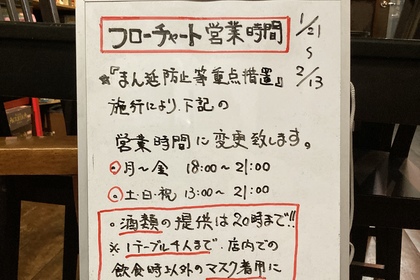 フローチャート営業時間
1/21
〜
2/13
☆『まん延防止等重点措置』
施行により、下記の
営業時間に変更致します。
○月〜金 18:00〜21:00
○土・日・祝 13:00〜21:00
○酒類の提供は20時まで!!
※1テーブル4人まで、店内での
飲食時以外のマスク着用に